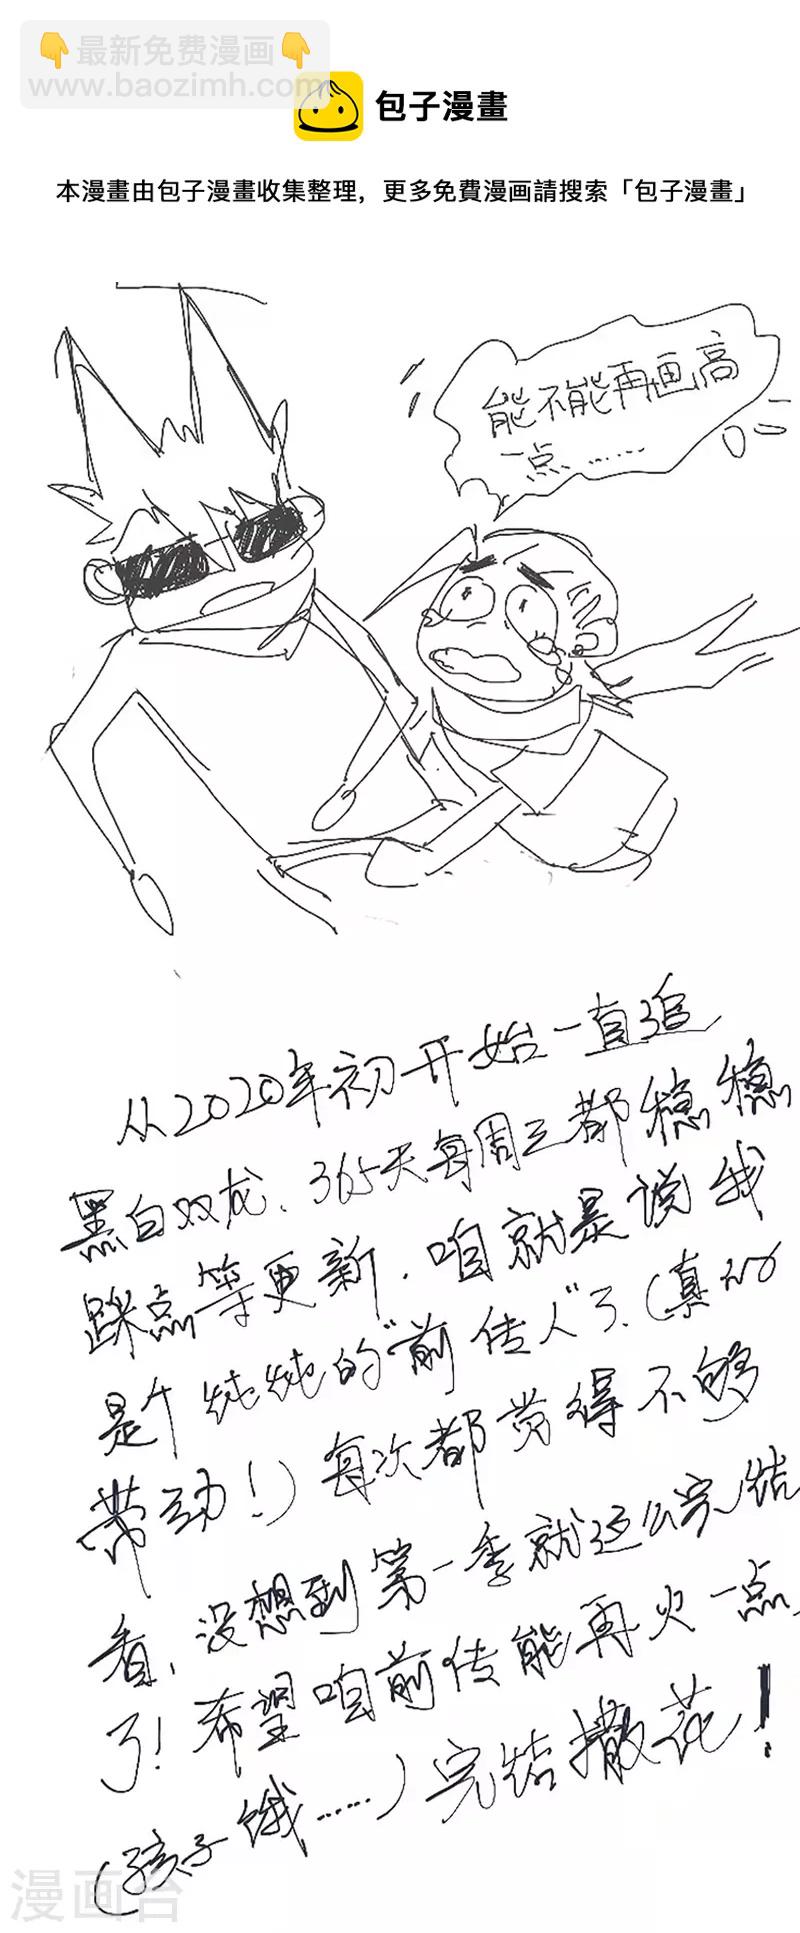 👇最新免费漫画👇
www.baozimh.com
包子漫畫
本漫畫由包子漫畫收集整理，更多免費漫画請搜索「包子漫畫」
能不能再画高
一点……
从2020年初开始一直追
黑白双龙、365天每周三都稳稳
踩点等更新，咱就是说我
是个纯纯的“前传人”了、（真的
带劲！）每次都觉得不够
看，没想到第一季就这么完结
了！希望咱前传能再火一点、
（孩子饿……）完结撒花！
漫画台